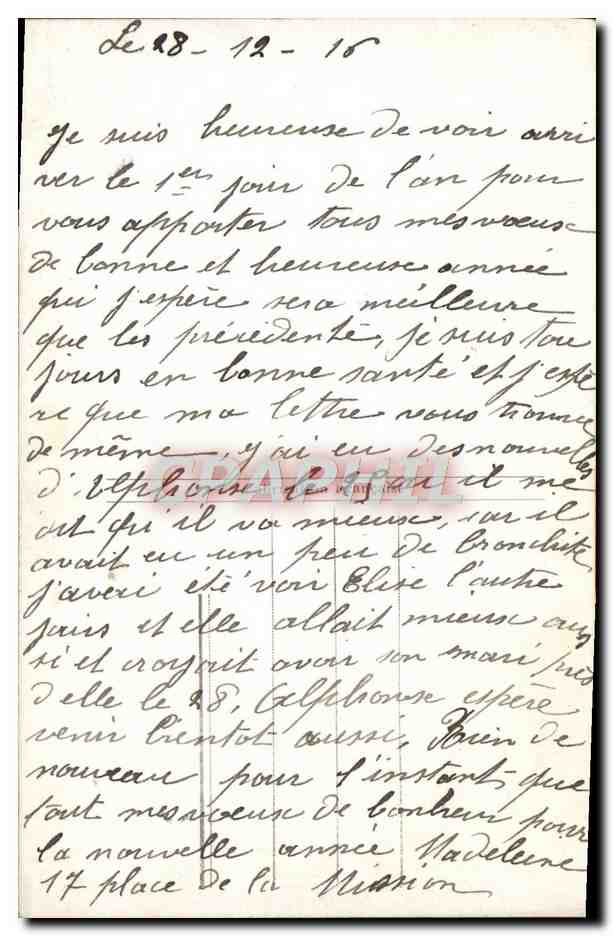 Le 28 - 12 - 16
Je suis heureuse de voir arri
ver le 1er jour de l'an pour
vous apporter tous mes vœux
de bonne et heureuse année
qui j'espère sera meilleure
que les précédente, je suis tou
jours en bonne santé et j'espè
re que ma lettre vous trouve
de même, j'ai eu des nouvelles
d'Alphonse le 25 il me
dit qu'il va mieux, car il
avait eu un peu de bronchite
j'avai été voir Elise l'autre
jours et elle allait mieux aus
si et croyait avoir son mari près
d'elle le 28, Alphonse espère
venir bientot aussi. Rien de
nouveau pour l'instant que
tout mes vœux de bonheur pour
la nouvelle année Madeleine
17 place de la Mission
CPAPHIL